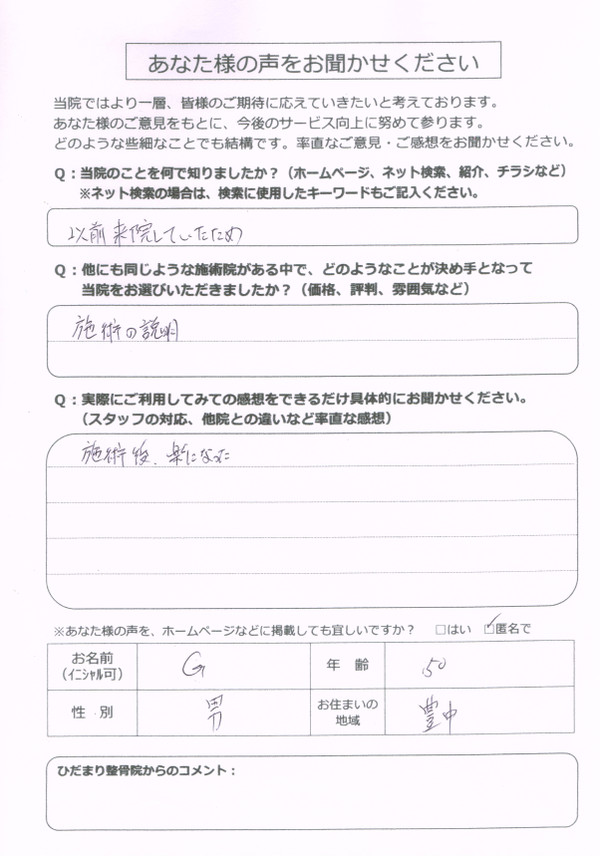 あなた様の声をお聞かせください
当院ではより一層、皆様のご期待に応えていきたいと考えております。
あなた様のご意見をもとに、今後のサービス向上に努めて参ります。
どのような些細なことでも結構です。率直なご意見・ご感想をお聞かせください。
Q：当院のことを何で知りましたか？（ホームページ、ネット検索、紹介、チラシなど）
※ネット検索の場合は、検索に使用したキーワードもご記入ください。
以前来院していたため
Q：他にも同じような施術院がある中で、どのようなことが決め手となって
当院をお選びいただきましたか？（価格、評判、雰囲気など）
施術の説明
Q：実際にご利用してみての感想をできるだけ具体的にお聞かせください。
（スタッフの対応、他院との違いなど率直な感想）
施術後、楽になった
※あなた様の声を、ホームページなどに掲載しても宜しいですか？ □はい ☑匿名で
お名前 G 年 齢 50
（ｲﾆｼｬﾙ可）
性 別 男 お住まいの 豊中
地域
ひだまり整骨院からのコメント：